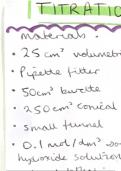 TITRATIO
materials.
• 25cm³ volumetri
• Pipette filler
• 50cm³ burette
• 250cm³ conical
• small funnel
• 0.1 mol/dm³
hydroxide solution